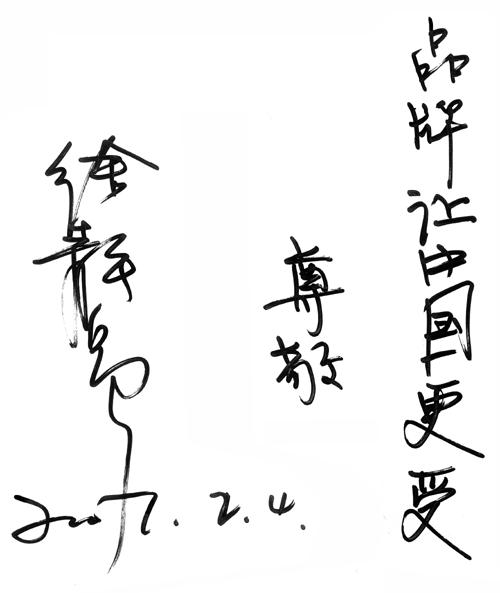 品牌让中国更受
尊敬
2007.2.4.